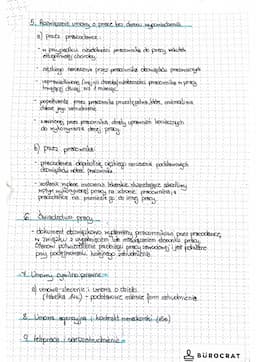 5. Rozwiązanie umowy o pracę bez okresu wypowiedzenia
a) przez pracodawcę:
- w przypadku niezdolności pracownika do pracy wskutek długotrwałej choroby
- ciężkiego naruszenia przez pracownika obowiązków pracowniczych
- usprawiedliwionej nieobecności pracownika w pracy trwającej dłużej niż 1 miesiąc
- popełnienia przez pracownika przestępstwa, które uniemożliwia dalsze jego zatrudnienie
- zawinionej przez pracownika utraty uprawnień koniecznych do wykonywania danej pracy
b) przez pracownika
- pracodawca dopuścił się ciężkiego naruszenia podstawowych obowiązków wobec pracownika
- zostanie wydane orzeczenie lekarskie stwierdzające szkodliwy wpływ wykonywanej pracy na zdrowie pracownika, a pracodawca nie przeniesie go do innej pracy
6. Świadectwo pracy
- dokument obowiązkowo wydawany pracownikowi przez pracodawcę,
w związku z wygaśnięciem lub rozwiązaniem stosunku pracy.
Stanowi potwierdzenie przebiegu pracy zawodowej i jest potrzebne
przy podejmowaniu kolejnego zatrudnienia
7. Umowy cywilno-prawne
a) umowa-zlecenie i umowa o dzieło
(tabelka A4) - podstawowe różnice form zatrudnienia
8. Umowa agencyjna i kontrakt menedżerski
9. Telepraca i samozatrudnienie
BÜROCRAT